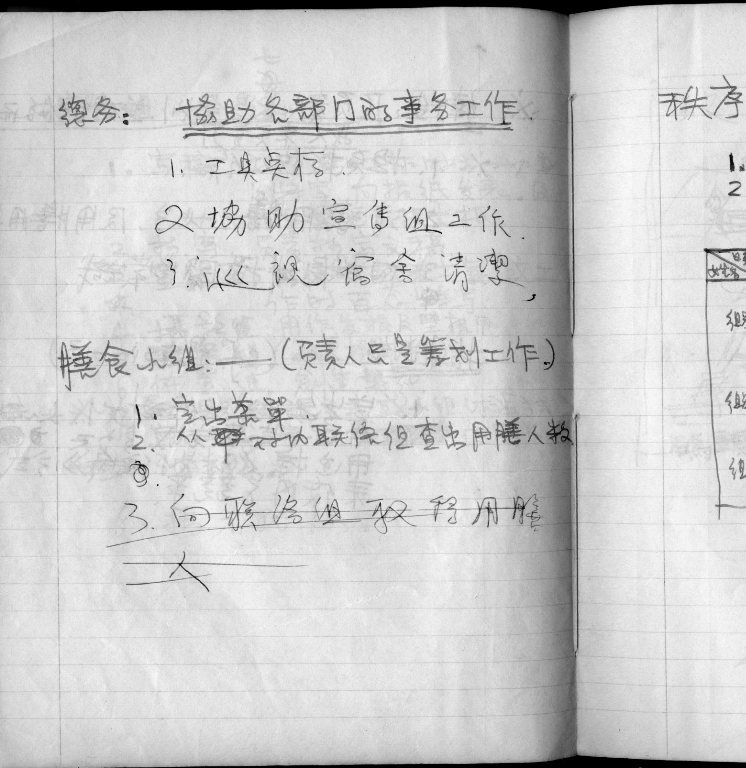 總务: 協助各部门的事务工作.
1. 工具
2 協助宣傳组工作.
3. 巡視宿舍清潔,
膳食小组:——(负责人只是筹划工作.)
1. 定出菜單.
2. 对内联络组查出用膳人数
3. 向联络组取得用膳
人
秩序
1.
2